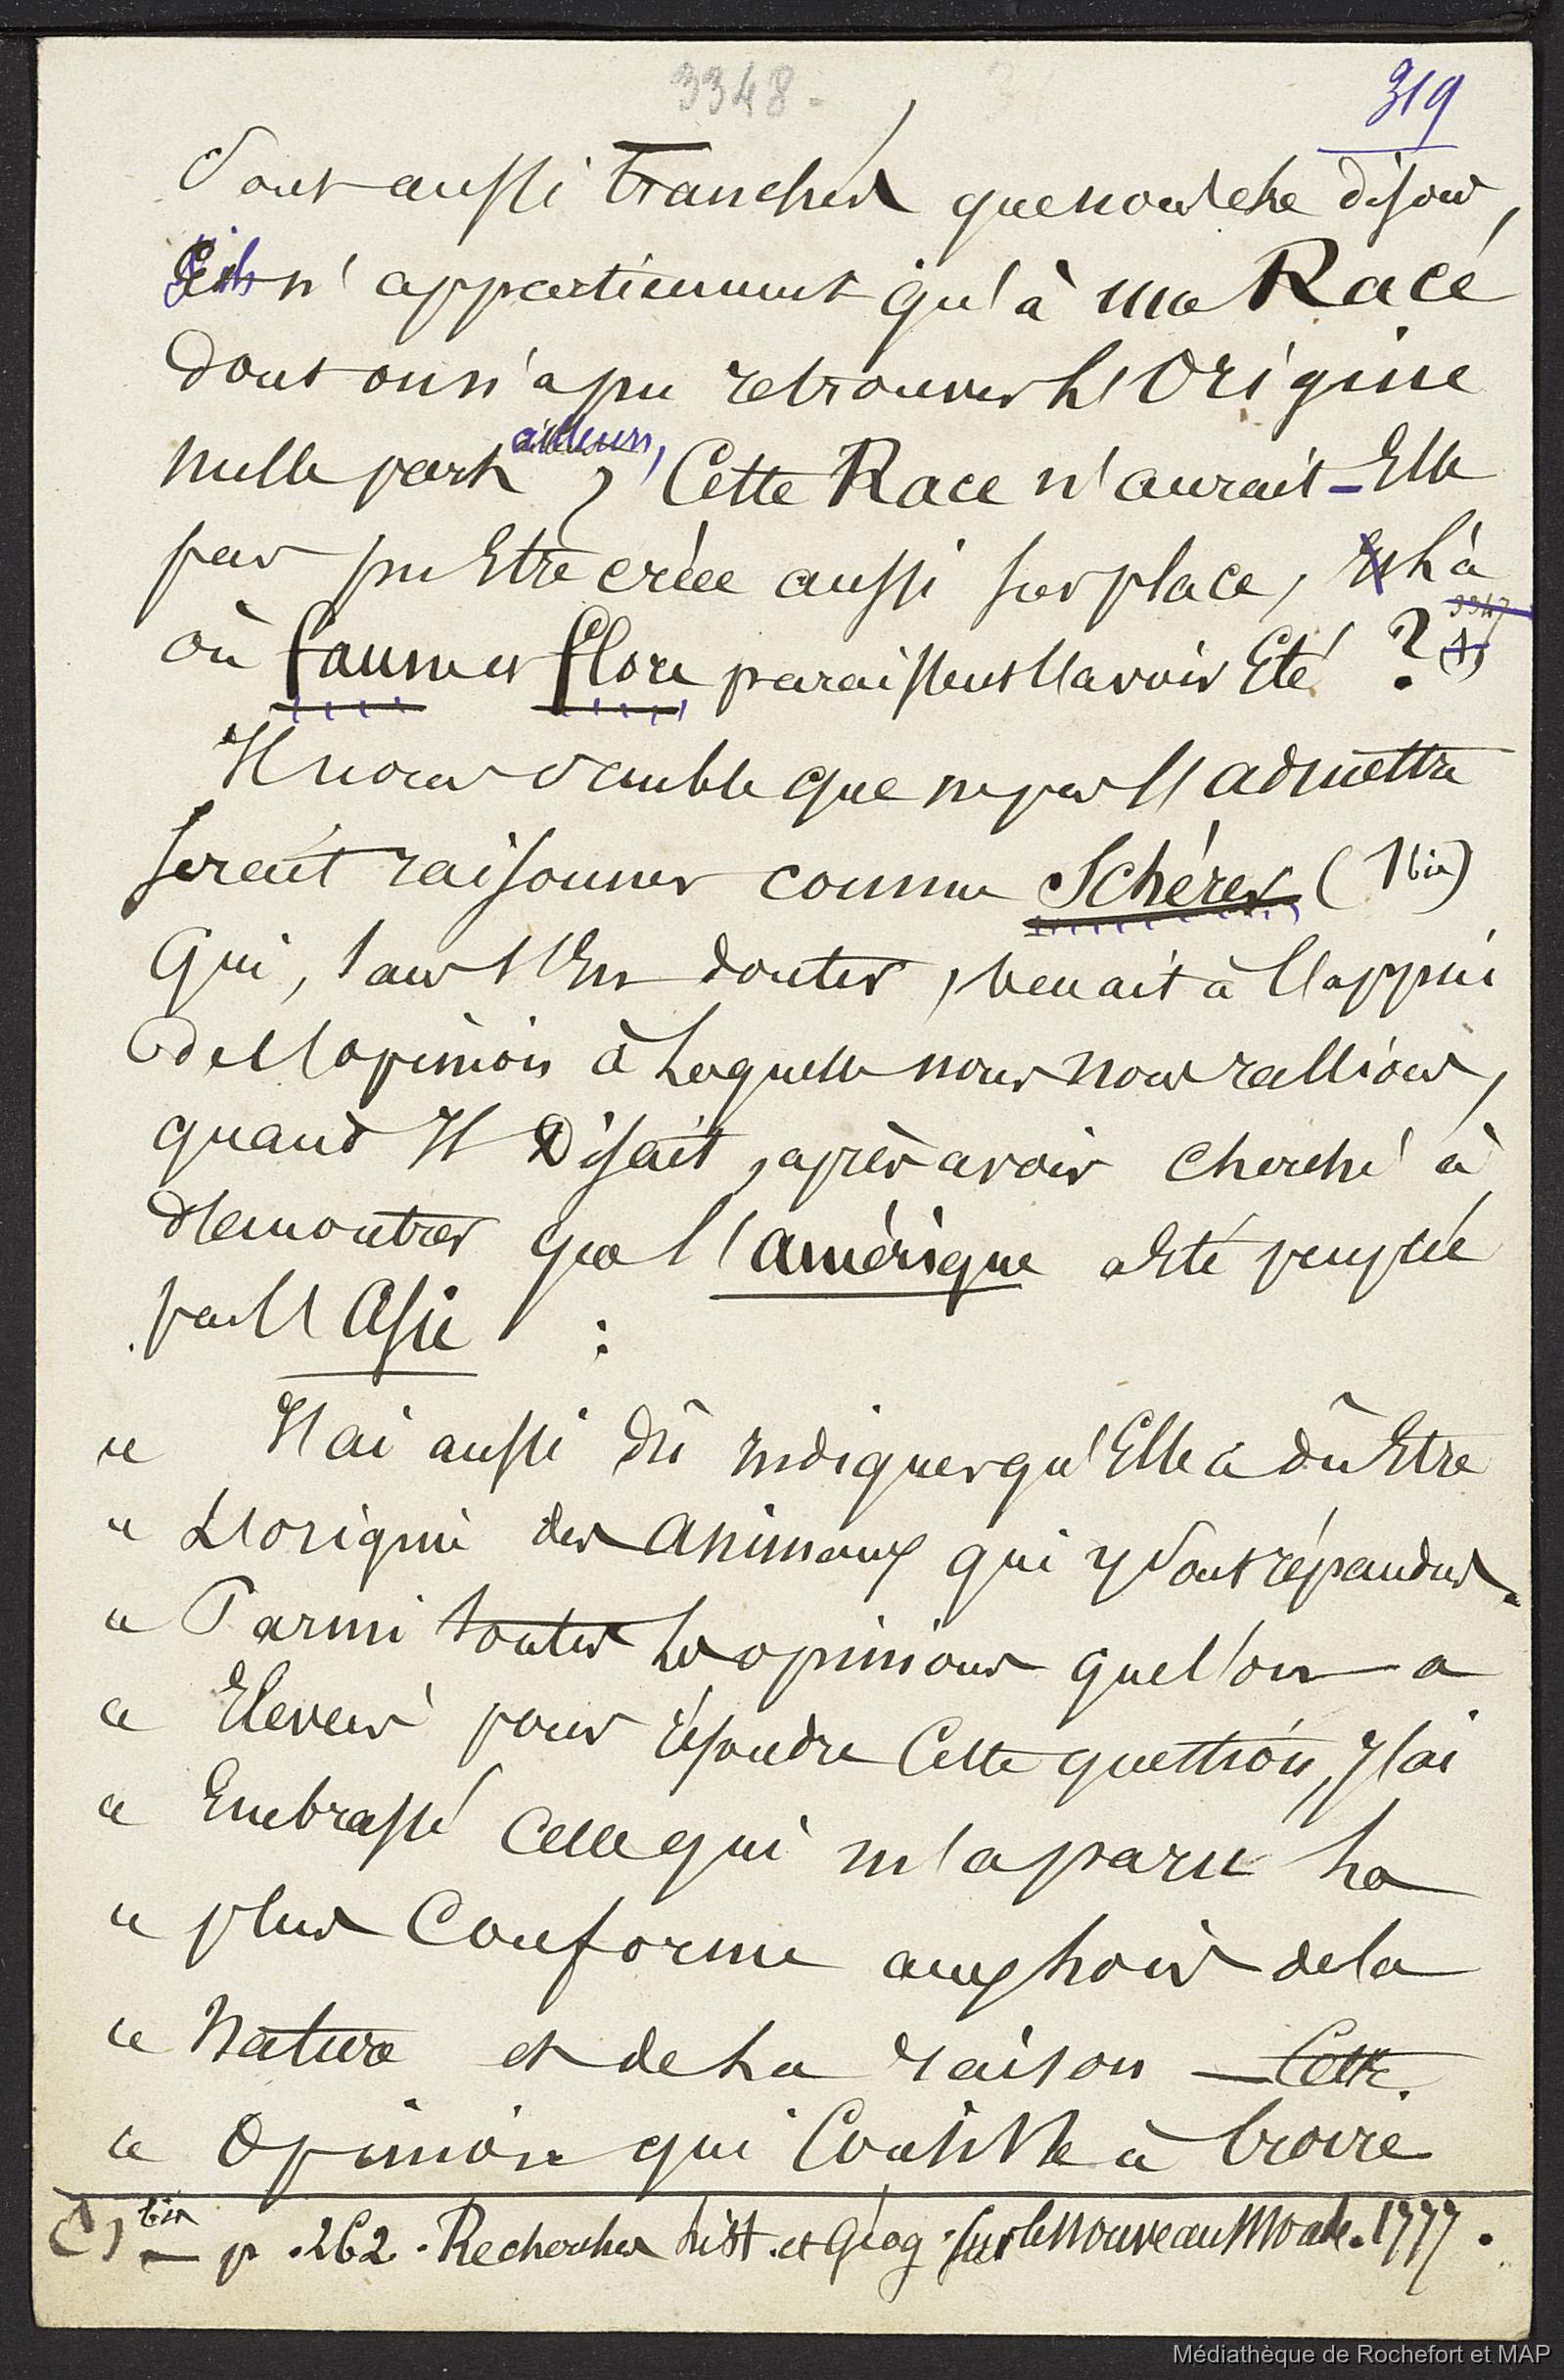 3348.
319
Sont aussi tranchés que nous le disons,
s'ils n'appartiennent qu'à ma Race
dont on n'a pu retrouver l'Origine
nulle part ailleurs, Cette Race n'aurait-Elle
pas pu Etre créée aussi sur place, là
3347
où faune et flore paraissent l'avoir Eté ? (1)
Il nous semble que ne pas l'admettre
serait raisonner comme Schérer (1 bis)
Qui, sans s'En douter, venait à l'appui
de l'opinion à laquelle nous nous rallions,
quand Il Disait, après avoir cherché à
démontrer que l'amérique a été peuplée
par l'Asie :
" J'ai aussi dû indiquer qu'Elle a dû Etre
" L'origine des Animaux qui y sont répandus.
" Parmi toutes les opinions que l'on a
" Elevées pour résoudre Cette question, j'ai
" Embrassé Celle qui m'a paru la
" plus Conforme aux lois de la
" Nature et de la raison — Cette
" Opinion qui Consiste à Croire
(1 bis — p. 262. Recherches hist. et Géog. sur le Nouveau Monde. 1777.
Médiathèque de Rochefort et MAP